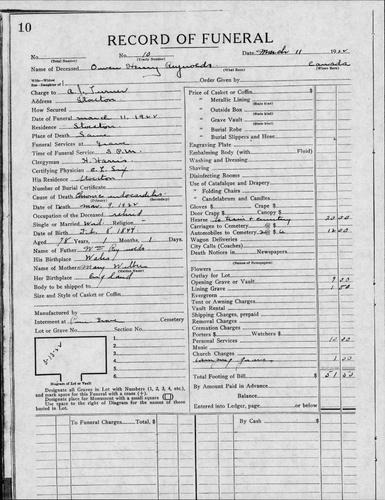 10
RECORD OF FUNERAL
No. No. 10 Date March 11 1922
(Total Number) (Yearly Number)
Name of Deceased Owen Henry Reynolds Canada
(What Race) (Where Born)
Wife—Widow
Son—Daughter of
Order Given by
Charge to A. J. Turner
Address Stockton
How Secured
Date of Funeral March 11, 1922
Residence Stockton
Place of Death Same
Funeral Services at Grave
Time of Services 3 P.M.
Clergyman H. Harris
Certifying Physician
His Residence Stockton
Number of Burial Certificate
Cause of Death Chronic myocarditis
(Primary) (Secondary)
Date of Death Mar. 9, 1922
Occupation of the Deceased retired
Single or Married Wid Religion
Date of Birth Feb. 8 1844
Aged 78 Years, 1 Months, 1 Days.
Name of Father Wm Reynolds
His Birthplace Wales
Name of Mother Mary
(Maiden Name)
Her Birthplace England
Body to be shipped to
Size and Style of Casket or Coffin
Manufactured by
Interment at Pine Grove Cemetery
Lot or Grave No. Section No.
1
2
3
4
5
6
Diagram of Lot or Vault
Designate all Graves in Lot with Numbers (1, 2, 3, 4, etc.),
and mark space for this Funeral with a cross (+).
Designate place for Monument with a small square
Use space to the right of Diagram for the names of those
buried in Lot.
Price of Casket or Coffin
" Metallic Lining
(State Kind)
" Outside Box
(State Kind)
" Grave Vault
(State Kind)
" Burial Robe
(State Kind)
" Burial Slippers and Hose
Engraving Plate
Embalming Body (with Fluid)
Washing and Dressing
Shaving
Disinfecting Rooms
Use of Catafalque and Drapery
" Folding Chairs
" Candelabrum and Candles
Gloves $ Crape $
Door Crape $ Canopy $
Hearse to train & cemetery 20 00
Carriages to Cemetery @ $
Automobiles to Cemetery 2 @ $ 6 12 00
Wagon Deliveries
City Calls
Death Notices in Newspapers
(Names of Newspapers)
Flowers
Outlay for Lot
Opening Grave or Vault
Lining Grave 1 50
Evergreen
Tent or Awning Charges
Vault Rental
Shipping Charges, prepaid
Removal Charges
Cremation Charges
Porters $ Watchers $
Personal Services 10 00
Music
Church Charges
1 00
Total Footing of Bill $
By Amount Paid in Advance
Balance
Entered into Ledger, page or below.
To Funeral Charges, Total $
By Cash $